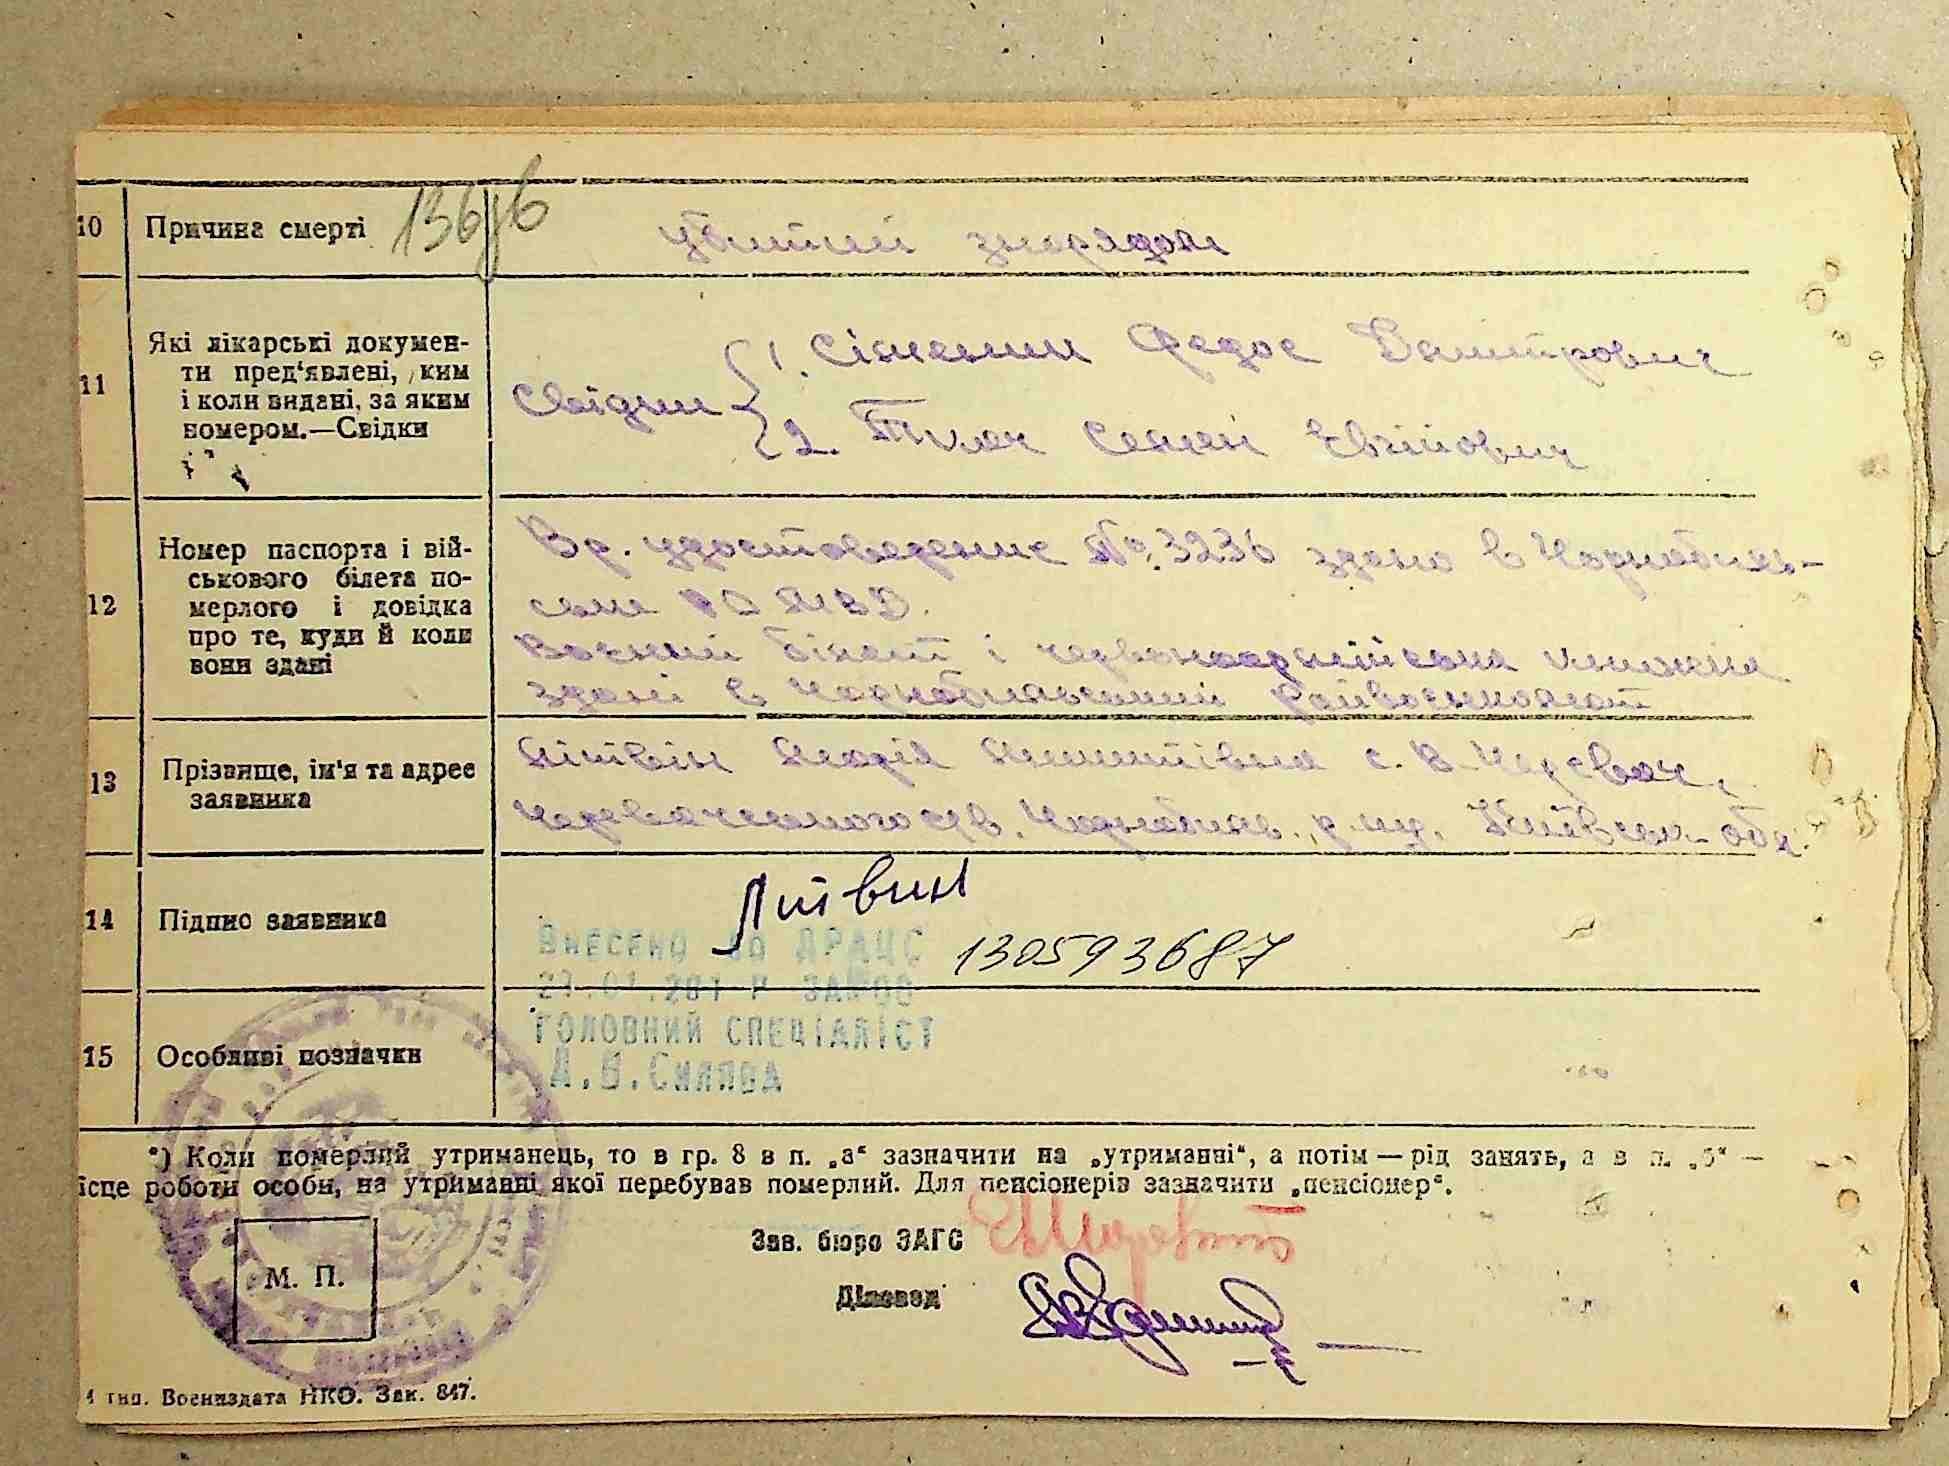 136/б
10 Причина смерті убитий знарядом
11 Які лікарські докумен-
ти пред'явлені, ким
і коли видані, за яким
номером.—Свідки
Свідки 1. Сікненин Федос Дмитрович
2. Ткач Семен Евгійович
12 Номер паспорта і вій-
ськового білета по-
мерлого і довідка
про те, куди й коли
вони здані
Вр. удостоведение № 3236 здано в Чорнобиль-
ськ РО МВД.
Воєний білет і червоноармійська книжка
здані в Чорнобильський райвоєнкомат
13 Прізвище, ім'я та адрес
заявника
Літвін Марія с. В. Черевач,
Черевачського с/в. Чорнобиль. р-ну. Київськ. обл.
14 Підпис заявника Литвин
Внесено до ДРАЦС 130593687
ГОЛОВНИЙ СПЕЦІАЛІСТ
15 Особливі позначки
*) Коли померлий утриманець, то в гр. 8 в п. „а“ зазначити на „утриманні“, а потім — рід занять, а в п. „б“ —
ісце роботи особи, на утриманні якої перебував померлий. Для пенсіонерів зазначити „пенсіонер“.
Зав. бюро ЗАГС
М. П.
Діловод
4 тип. Воениздата НКО. Зак. 847.